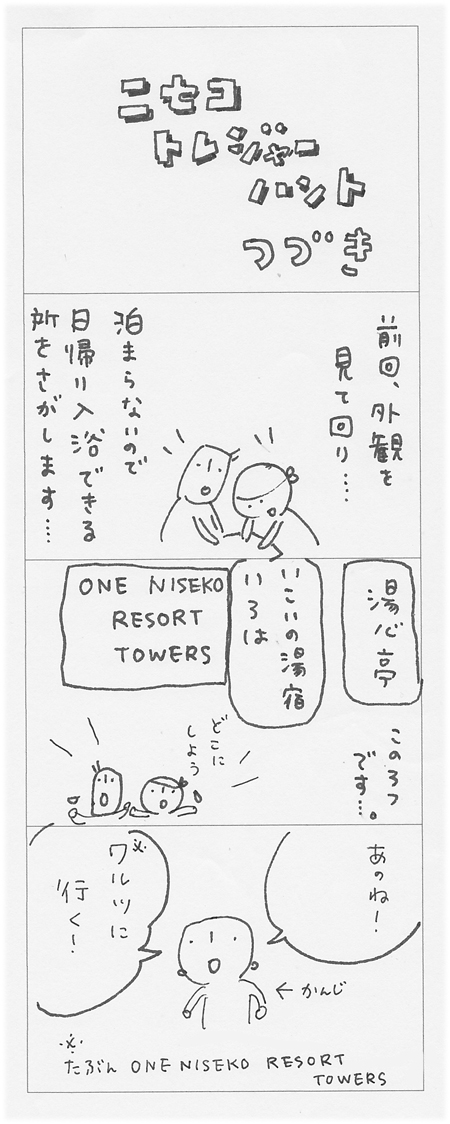 ニセコ
トレジャー
ハント
つづき
前回、外観を
見て回り……
泊まらないので
日帰り入浴できる
所をさがします……
湯心亭
いこいの湯宿
いろは
ONE NISEKO
RESORT
TOWERS
この3つ
です…。
どこに
しよう
あのね!
※
ワルツに
行く!
←かんじ
※
たぶん ONE NISEKO RESORT
TOWERS